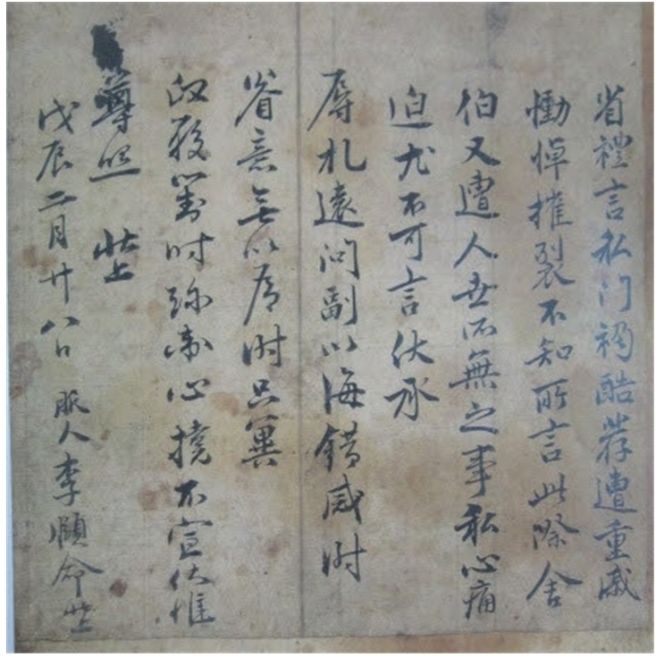 省禮言私门禍酷荐遭重戚
慟悼摧裂不知所言此際舍
伯又遭人世所無之事私心痛
迫尤不可言伏承
辱札遠问副以海錯感
眷意無以為只冀
政履對时珍心撓不宣伏惟
尊照 狀上
戊辰二月廿八日 服人李頤命狀